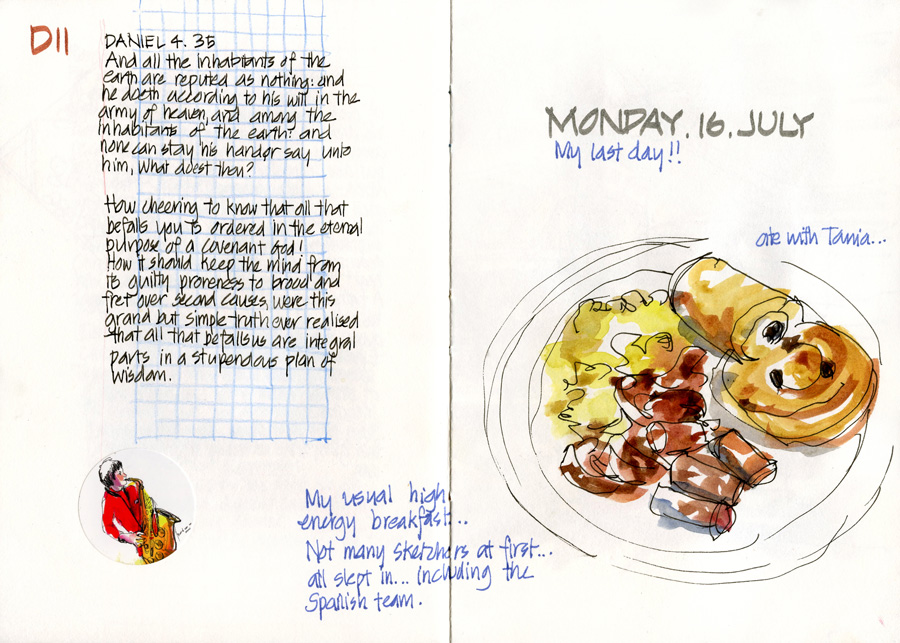 D11
DANIEL 4. 35
And all the inhabitants of the
earth are reputed as nothing: and
he doeth according to his will in the
army of heaven, and among the
inhabitants of the earth: and
none can stay his hand or say unto
him, What doest thou?
How cheering to know that all that
befalls you is ordered in the eternal
purpose of a covenant God!
How it should keep the mind from
its guilty proneness to brood and
fret over second causes, were this
grand but simple truth ever realised
that all that befalls us are integral
parts in a stupendous plan of
wisdom.
MONDAY. 16. JULY
My last day!!
ate with Tania...
My usual high
energy breakfast...
Not many sketchers at first...
all slept in... including the
Spanish team.